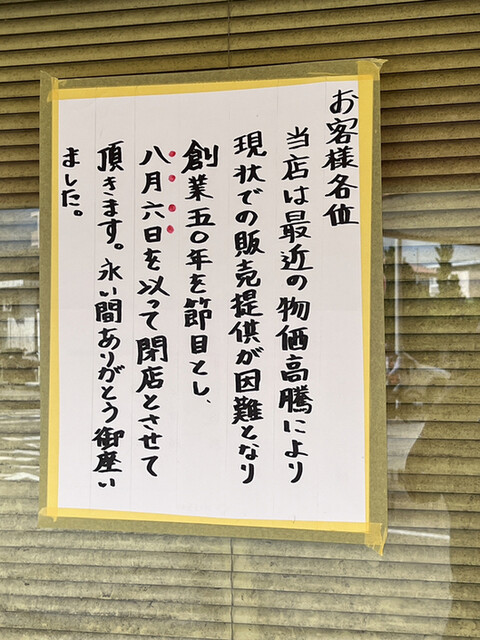 お客様各位
当店は最近の物価高騰により
現状での販売提供が困難となり
創業五〇年を節目とし、
八月六日を以って閉店とさせて
頂きます。永い間ありがとう御座い
ました。